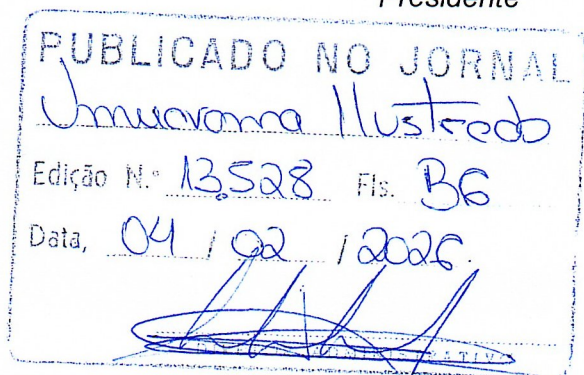 Presidente
PUBLICADO NO JORNAL
Umuarama Ilustrado
Edição N.º 13.528 Fls. B6
Data, 04 / 02 / 2026.